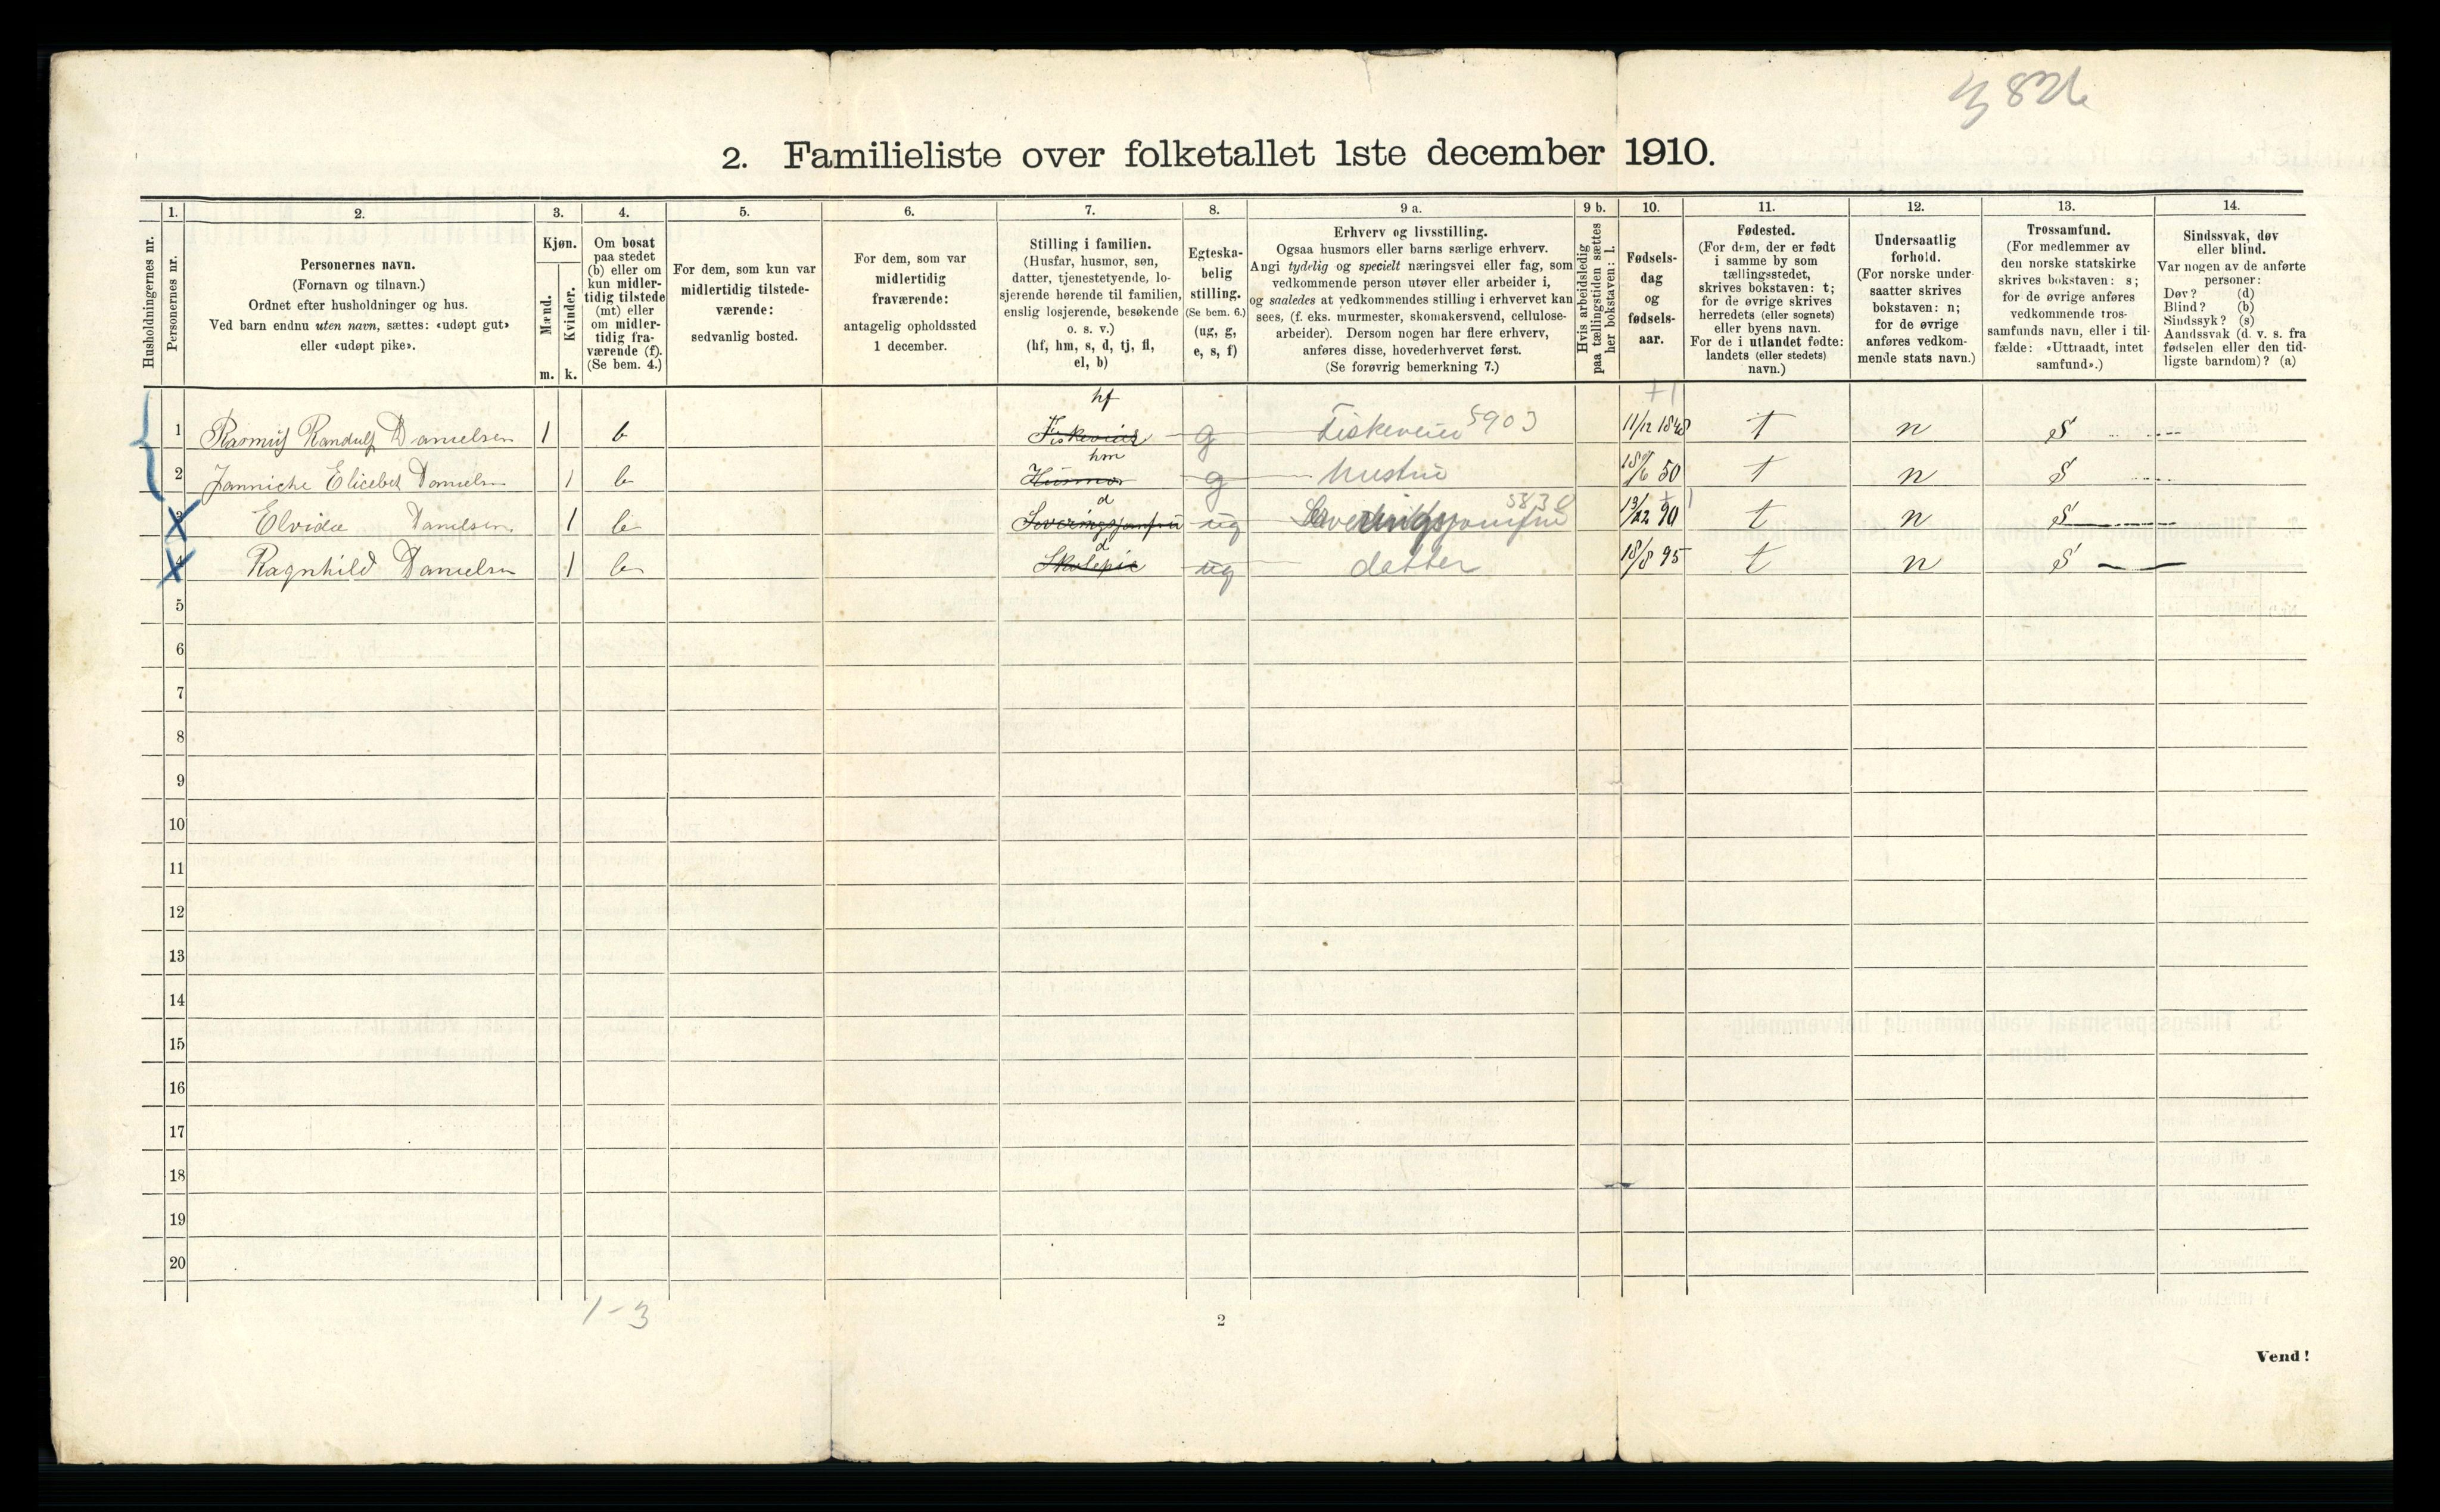 3826
2. Familieliste over folketallet 1ste december 1910.
Husholdningernes nr.
1.
Personernes nr.
2.
Personernes navn.
(Fornavn og tilnavn.)
Ordnet efter husholdninger og hus.
Ved barn endnu uten navn, sættes: «udøpt gut»
eller «udøpt pike».
3.
Kjøn.
Mænd.
Kvinder.
m. k.
4.
Om bosat
paa stedet
(b) eller om
kun midler-
tidig tilstede
(mt) eller
om midler-
tidig fra-
værende (f).
(Se bem. 4.)
5.
For dem, som kun var
midlertidig tilstede-
værende:
sedvanlig bosted.
6.
For dem, som var
midlertidig
fraværende:
antagelig opholdssted
1 december.
7.
Stilling i familien.
(Husfar, husmor, søn,
datter, tjenestetyende, lo-
sjerende hørende til familien,
enslig losjerende, besøkende
o. s. v.)
(hf, hm, s, d, tj, fl,
el, b)
8.
Egteska-
belig
stilling.
(Se bem. 6.)
(ug, g,
e, s, f)
9 a.
Erhverv og livsstilling.
Ogsaa husmors eller barns særlige erhverv.
Angi tydelig og specielt næringsvei eller fag, som
vedkommende person utøver eller arbeider i,
og saaledes at vedkommendes stilling i erhvervet kan
sees, (f. eks. murmester, skomakersvend, cellulose-
arbeider). Dersom nogen har flere erhverv,
anføres disse, hovederhvervet først.
(Se forøvrig bemerkning 7.)
9 b.
Hvis arbeidsledig
paa tællingstiden sættes
her bokstaven: l.
10.
Fødsels-
dag
og
fødsels-
aar.
11.
Fødested.
(For dem, der er født
i samme by som
tællingsstedet,
skrives bokstaven: t;
for de øvrige skrives
herredets (eller sognets)
eller byens navn.
For de i utlandet fødte:
landets (eller stedets)
navn.)
12.
Undersaatlig
forhold.
(For norske under-
saatter skrives
bokstaven: n;
for de øvrige
anføres vedkom-
mende stats navn.)
13.
Trossamfund.
(For medlemmer av
den norske statskirke
skrives bokstaven: s;
for de øvrige anføres
vedkommende tros-
samfunds navn, eller i til-
fælde: «Uttraadt, intet
samfund».)
14.
Sindssvak, døv
eller blind.
Var nogen av de anførte
personer:
Døv? (d)
Blind? (b)
Sindssyk? (s)
Aandssvak (d. v. s. fra
fødselen eller den tid-
ligste barndom)? (a)
hf
1 Rasmus Randulf Danielsen 1 b Fiskeveier g Fiskeveier 5903 11/12 1848 t n S
hm
2 Jannicke Elicebet Danielsen 1 b Husmor g hustru 18/6 50 t n S
d
3 Elvida Danielsen 1 b Serveringsjomfru ug Serveringsjomfru 13/12 90 t n S
d
4 Ragnhild Danielsen 1 b Skolepie ug datter 18/8 95 t n S
5
6
7
8
9
10
11
12
13
14
15
16
17
18
19
20
1-3
2
Vend!